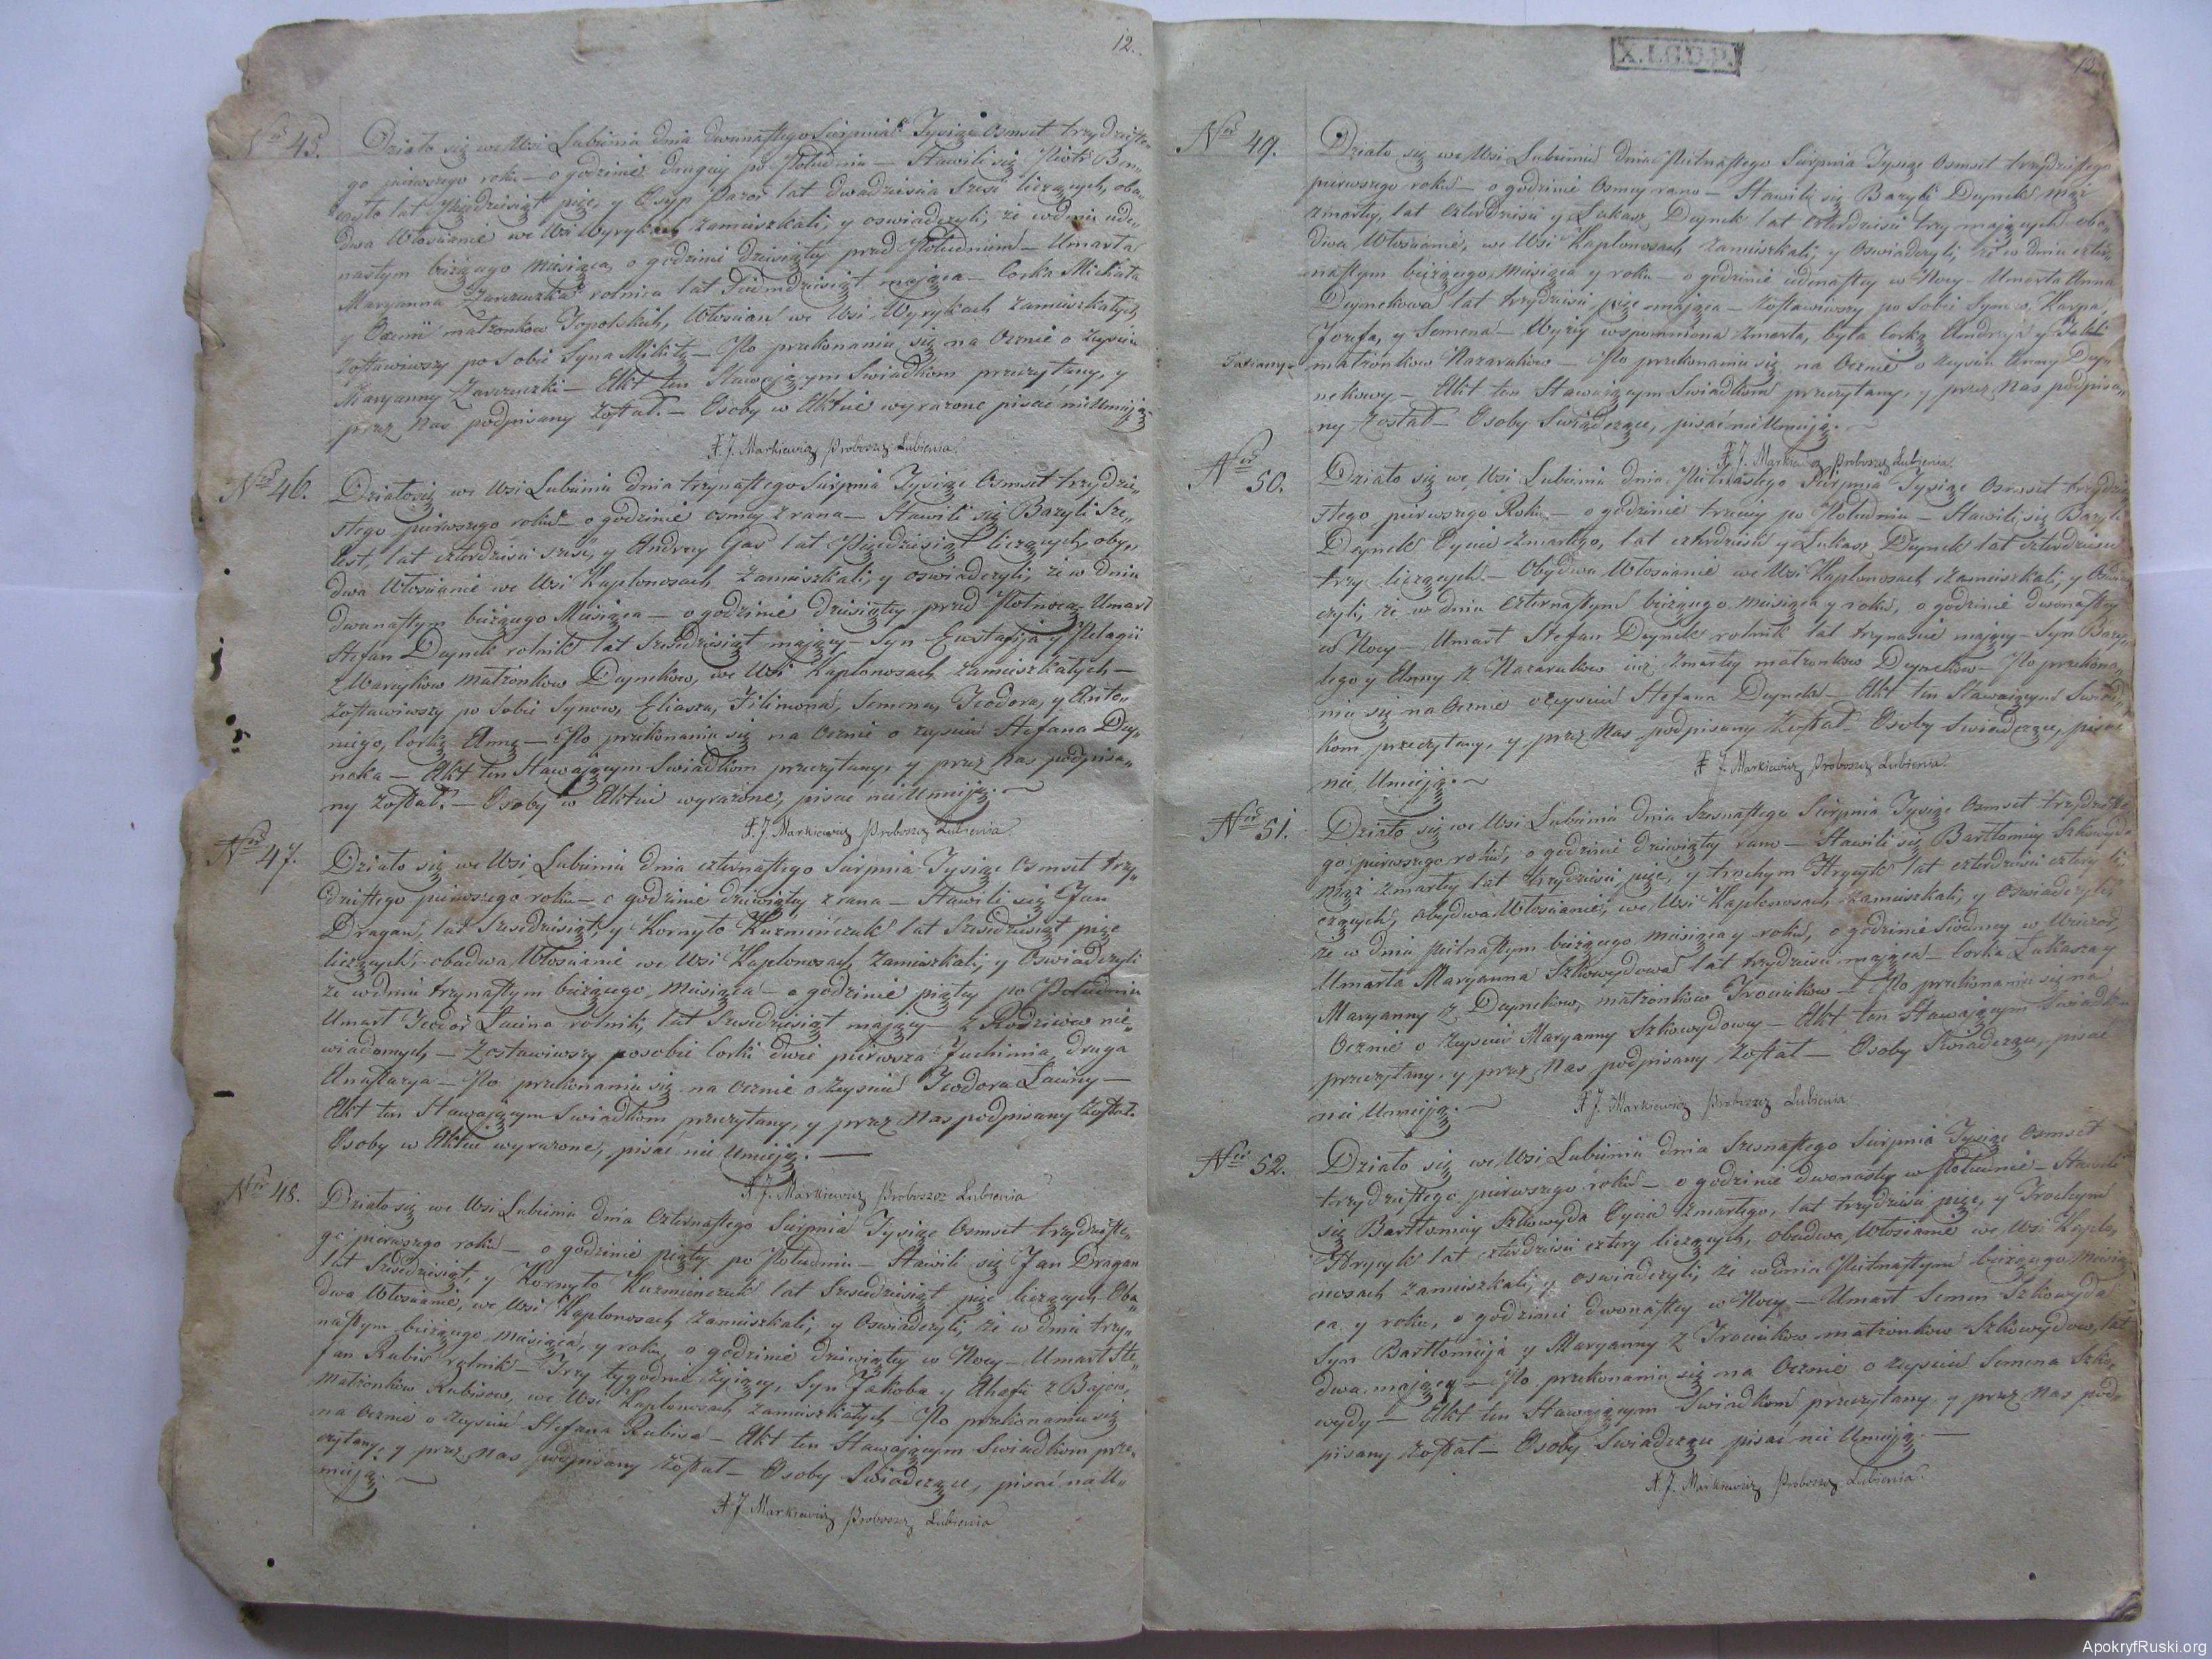 12.
Nro 45. Działo się we Wsi Lubieniu dnia dwunastego Sierpnia Tysiąc Osmset trzydzieste„
go pierwszego roku — o godzinie drugiey po Południu — Stawili się Piotr
lat Pięćdziesiąt pięć, y Esyp Pazoś lat dwadzieścia sześć liczących, oba„
dwa Włościanie we Wsi Wyrykach zamieszkali, y oswiadczyli, że w dniu
nastym bieżącego Miesiąca, o godzinie dziesiątey przed Południem — Umarła
Maryanna rolnica lat Siedmdziesiąt maiąca — Corka Michała
y Oxenii małżonkow Topolskich, Włościan we Wsi Wyrykach zamieszkałych
zostawiwszy po Sobie Syna Mikitę — Po przekonaniu się na Ocznie o Zeysciu
Maryanny — Akt ten Stawaiącym Swiadkom przeczytany, y
przez Nas podpisany został. — Osoby w Akcie wyrażone pisać nie Umieją.
X. J. Markiewicz Proboszcz Lubienia.
Nro 46. Działo się we Wsi Lubieniu dnia trzynastego Sierpnia Tysiąc Osmset trzydzie„
stego pierwszego roku — o godzinie osmey z rana — Stawili się Bazyli Sze„
lest, lat czterdzieści sześć, y Andrzey Gas lat Pięćdziesiąt liczących, oby„
dwa Włościanie we Wsi Kaplonosach zamieszkali, y oswiadczyli, że w dniu
dwunastym bieżącego Miesiąca — o godzinie dziesiątey przed Północą Umarł
Stefan Deynek rolnik lat Sześćdziesiąt maiący — Syn Eustafija y Pelagii
z Warcykow małżonkow Deynekow, we Wsi Kaplonosach zamieszkałych —
zostawiwszy po Sobie Synow, Eliasza, Filimona, Semena, Teodora, y Anto„
niego, Corkę Annę — Po przekonaniu się na Ocznie o zeysciu Stefana Dey„
neka — Akt ten Stawaiącym Swiadkom przeczytany, y przez Nas podpisa„
ny został. — Osoby w Akcie wyrażone, pisac nie Umieją. —
X. J. Markiewicz Proboszcz Lubienia.
Nro 47. Działo się we Wsi Lubieniu dnia czternastego Sierpnia Tysiąc Osmset trzy„
dziestego pierwszego roku — o godzinie dziewiątey z rana — Stawili się Jan
Dragan, lat Sześćdziesiąt, y Kornyło Kuzmińczuk lat Sześćdziesiąt pięć
liczących, obadwa Włościanie we Wsi Kaplonosach zamieszkali, y Oswiadczyli
że w dniu trzynastym bieżącego Miesiąca — o godzinie piątey po Południu
Umarł Teodor Łacina rolnik, lat Sześćdziesiąt maiący — z Rodziców nie„
wiadomych, — Zostawiwszy po sobie Corki dwie pierwsza Juchimia, druga
Anastazya — Po przekonaniu się na Ocznie o Zeysciu Teodora Łaciny —
Akt ten Stawaiącym Swiadkom przeczytany, y przez Nas podpisany został.
Osoby w Akcie wyrażone, pisać nie Umieją. —
X. J. Markiewicz Proboszcz Lubienia
Nro 48. Działo się we Wsi Lubieniu dnia Czternastego Sierpnia Tysiąc Osmset trzydzieste„
go pierwszego roku — o godzinie piątey po Południu — Stawili się Jan Dragan
lat Sześćdziesiąt, y Kornyło Kuzmińczuk lat Sześćdziesiąt pięć liczących Oba„
dwa Włościanie, we Wsi Kaplonosach zamieszkali, y Oswiadczyli, że w dniu trzy„
nastym bieżącego, miesiąca, y roku, o godzinie dziewiątey w Nocy — Umarł Ste„
fan Rubis rolnik — Trzy tygodnie żyiący, Syn Jakoba y Ahafii z Bajow,
małżonkow Rubisow, we Wsi Kaplonosach zamieszkałych — Po przekonaniu się
na Ocznie o zeysciu Stefana Rubisa — Akt ten Stawaiącym Swiadkom prze„
czytany, y przez Nas podpisany został — Osoby Swiadczące, pisać nie U„
mieją. —
X J Markiewicz Proboszcz Lubienia
X.L.G.D.P.
12
Nro 49. Działo się we Wsi Lubieniu dnia Pietnastego Sierpnia Tysiąc Osmset trzydziestego
pierwszego roku — o godzinie Osmey rano — Stawili się Bazyli Deynek mąż
zmarłey, lat Czterdzieści y Łukasz Deynek lat czterdzieści trzy maiących oba„
dwa Włościanie, we Wsi Kaplonosach zamieszkali, y Oswiadczyli, że w dniu czter„
nastym bieżącego, miesiąca y roku — o godzinie iedenastey w Nocy — Umarła Anna
Deynekowa lat trzydzieści pięć maiąca — Zostawiwszy po Sobie Synow, Karpa,
Jozefa, y Semena — Wyżey wspomniona Zmarła, była Corką Andreja y
Tatianny małżonkow Nazarukow — Po przekonaniu się na Ocznie o zeysciu Anny Dey„
nekowey — Akt ten Stawaiącym Swiadkom przeczytany, y przez Nas podpisa„
ny został — Osoby Swiadczące, pisać nie Umieją. —
X J. Markiewicz Proboszcz Lubienia.
Nro 50. Działo się we Wsi Lubieniu dnia Pietnastego Sierpnia Tysiąc Osmset trzydzie
stego pierwszego Roku — o godzinie trzeciey po Południu — Stawili się Bazyli
Deynek Oyciec Zmarłego, lat czterdzieści y Łukasz Deynek lat czterdzieści
trzy liczących — Obydwa Włościanie we Wsi Kaplonosach zamieszkali, y Oswiad
czyli, że w dniu Czternastym bieżącego miesiąca y roku, o godzinie dwonastey
w Nocy — Umarł Stefan Deynek rolnik lat trzynascie maiący — Syn Bazy„
lego y Anny z Nazarukow iuż zmarłey małżonkow Deynekow — Po przekona„
niu się na Ocznie o Zeysciu Stefana Deyneka — Akt ten Stawaiącym Swiad„
kom przeczytany, y przez Nas podpisany Został — Osoby Swiadczące, pisać
nie Umieją. —
X J Markiewicz Proboszcz Lubienia.
Nro 51. Działo się we Wsi Lubieniu dnia Szesnastego Sierpnia Tysiąc Osmset trzydzieste
go pierwszego roku, o godzinie dziewiątey rano — Stawili się Bartłomiey Szkowyda
mąż zmarłey lat trzydzieści pięć, y Trochym Hrycyk lat czterdzieści cztery li„
czących, obydwa Włościanie, we Wsi Kaplonosach zamieszkali, y Oswiadczyli,
że w dniu Pietnastym bieżącego miesiąca y roku, o godzinie Siodmey w Wieczor,
Umarła Maryanna Szkowydowa lat trzydzieści maiąca — Corka Łukasza y
Maryanny z Deynekow, małżonkow Trociukow — Po przekonaniu się na
Ocznie o Zeysciu Maryanny Szkowydowey — Akt ten Stawaiącym Swiadkom
przeczytany, y przez Nas podpisany został — Osoby Swiadczące, pisac
nie Umieją. —
X J. Markiewicz Proboszcz Lubienia
Nro 52. Działo się we Wsi Lubieniu dnia Szesnastego Sierpnia Tysiąc Osmset
trzydziestego pierwszego roku — o godzinie dwonastey w Południe — Stawili
się Bartłomiey Szkowyda Oyciec zmarłego, lat trzydzieści pięć, y Trochym
Hrycyk lat czterdzieści cztery liczących, obadwa Włościanie we Wsi Kaplo„
nosach zamieszkali, y oswiadczyli, że w dniu Pietnastym bieżącego Miesią
ca y roku, o godzinie dwonastey w Nocy — Umarł Semen Szkowyda
Syn Bartłomieja y Maryanny z Trociukow małżonkow Szkowydow, lat
dwa maiący — Po przekonaniu się na Ocznie o zeysciu Semena Szko„
wydy — Akt ten Stawaiącym Swiadkom przeczytany y przez Nas pod„
pisany został — Osoby Swiadczące pisać nie Umieją. —
X. J. Markiewicz Proboszcz Lubienia.
ApokryfRuski.org